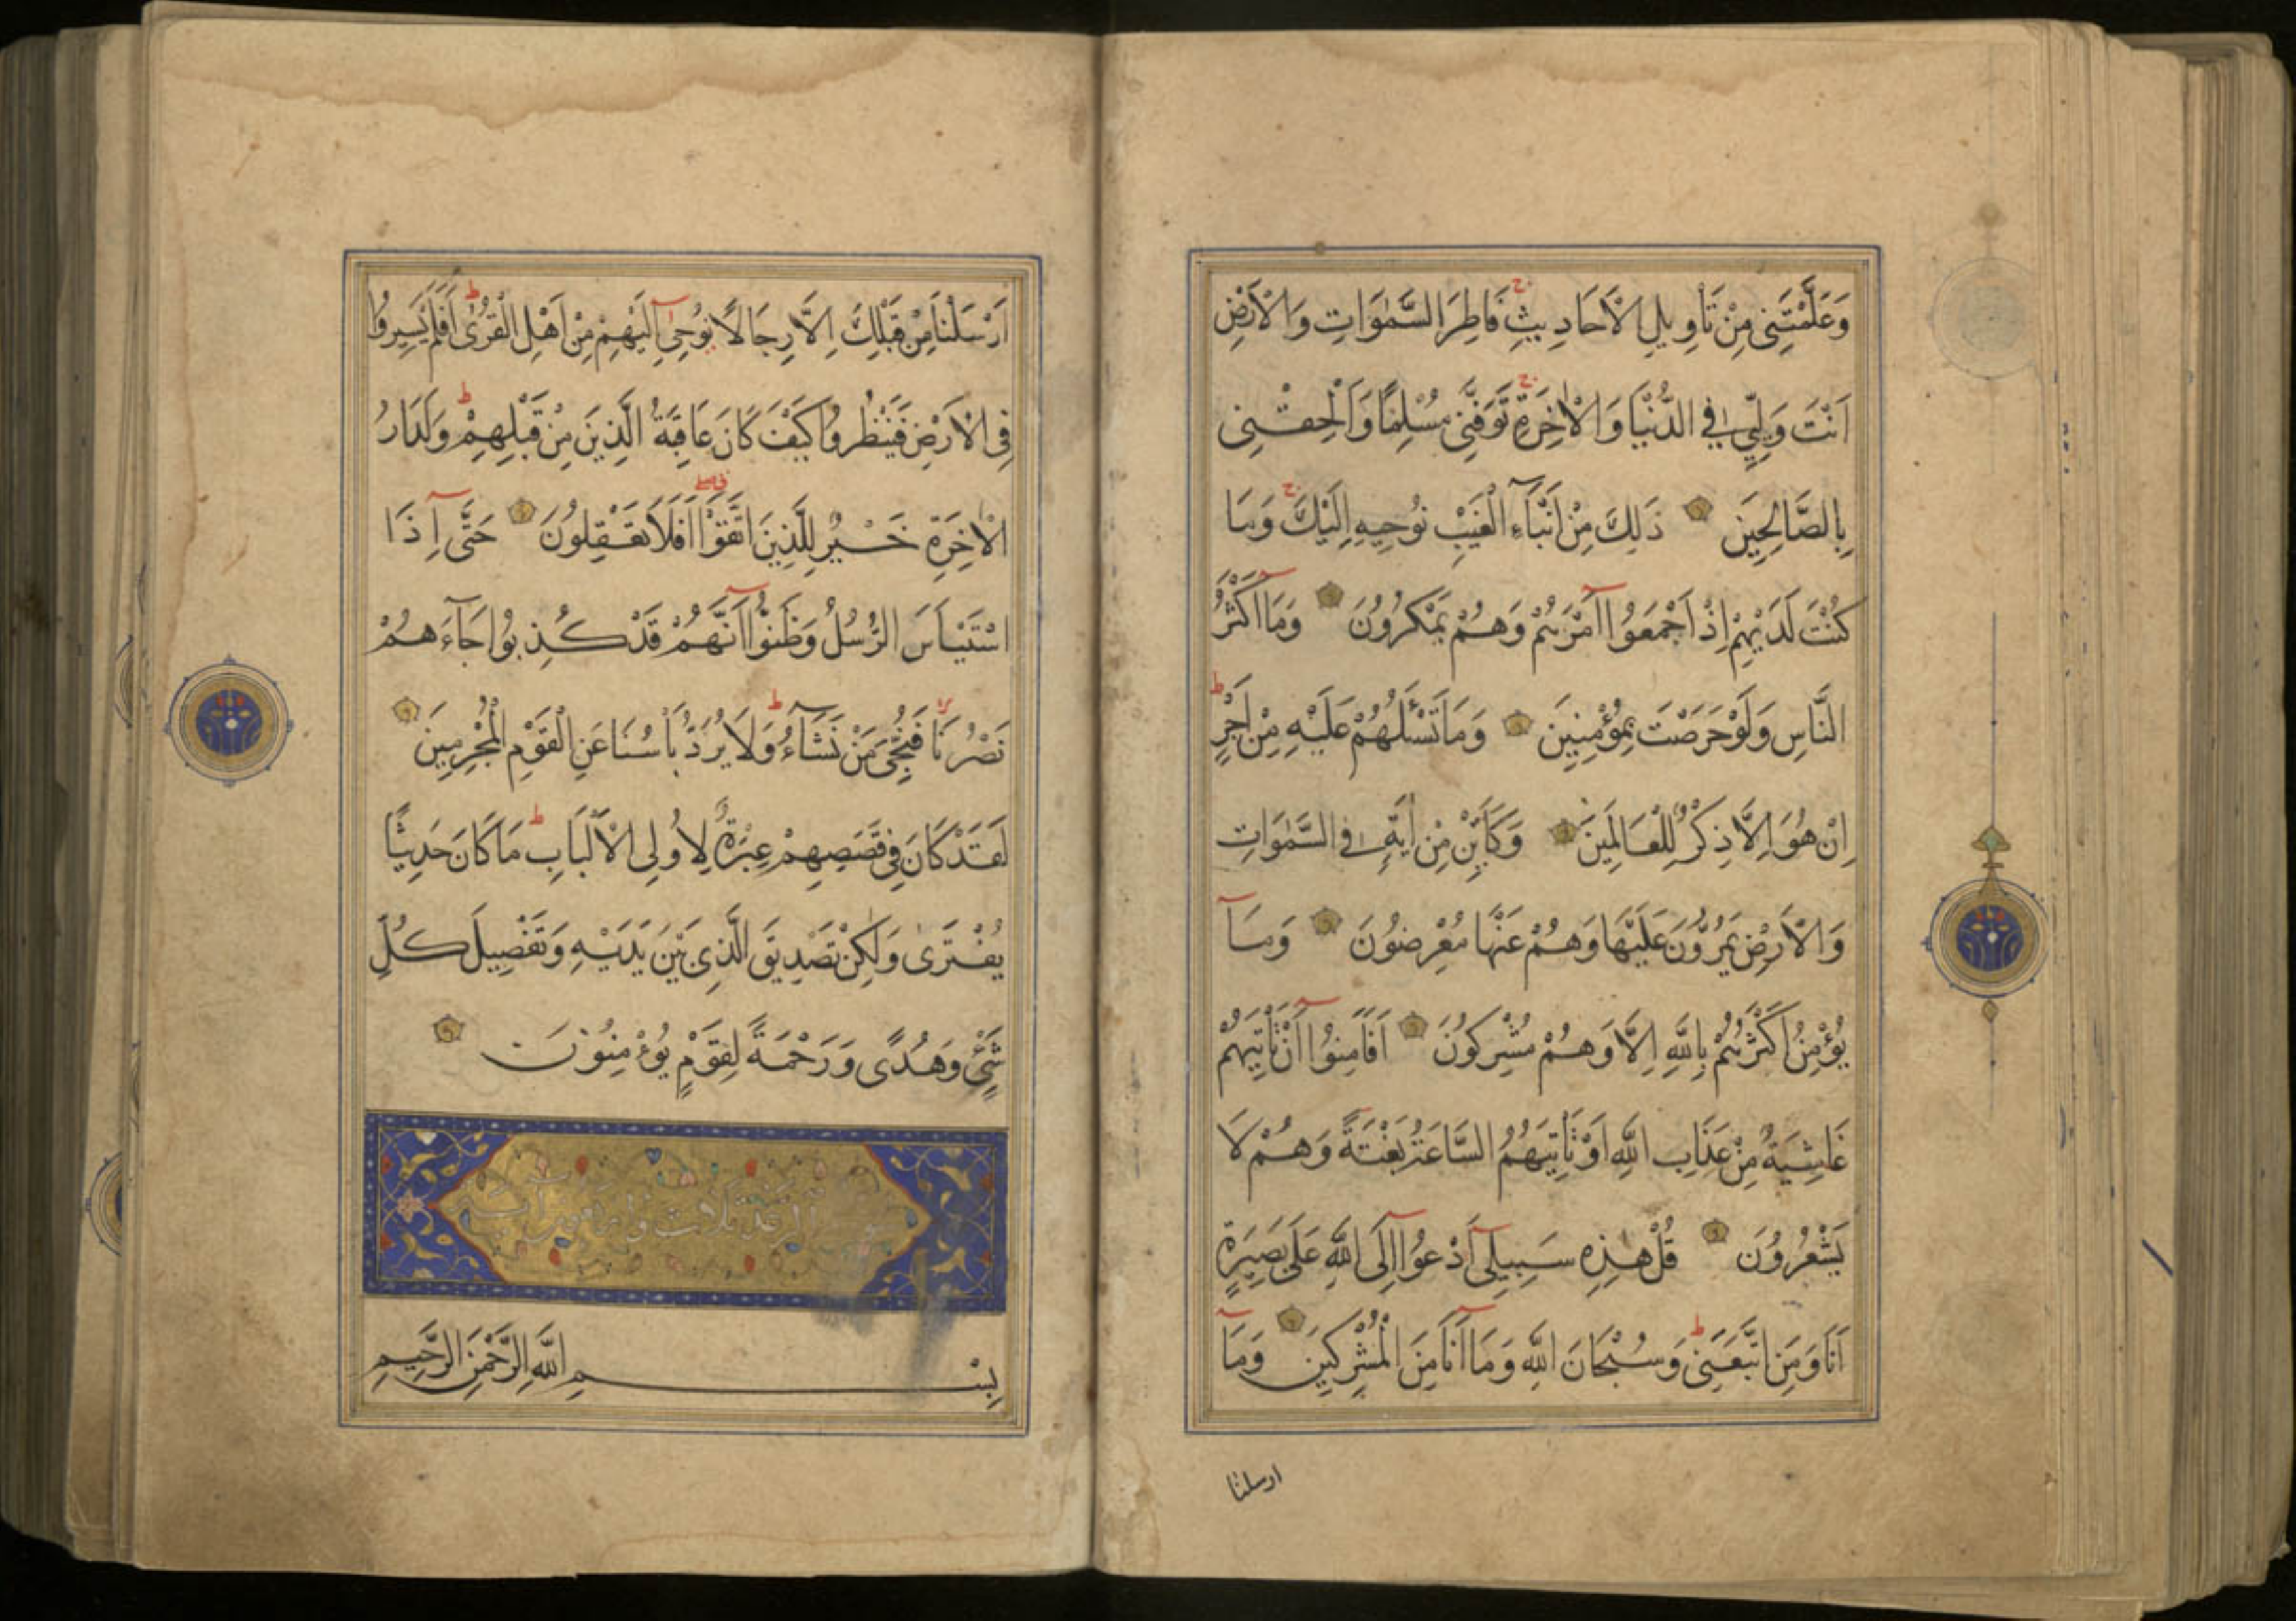 وَعَلَّمْتَنِى مِنْ تَأْوِيلِ الْاَحَادِيثِ ج فَاطِرَ السَّمٰوَاتِ وَالْاَرْضِ
اَنْتَ وَلِيِّ فِى الدُّنْيَا وَالْاٰخِرَةِ ج تَوَفَّنِى مُسْلِمًا وَاَلْحِقْنِى
بِالصَّالِحِينَ ذَلِكَ مِنْ اَنْبَآءِ الْغَيْبِ نُوحِيهِ اِلَيْكَ ج وَمَا
كُنْتَ لَدَيْهِمْ اِذْ اَجْمَعُوا اَمْرَهُمْ وَهُمْ يَمْكُرُونَ وَمَا اَكْثَرُ
النَّاسِ وَلَوْ حَرَصْتَ بِمُؤْمِنِينَ وَمَا تَسْـَٔلُهُمْ عَلَيْهِ مِنْ اَجْرٍ ط
اِنْ هُوَ اِلَّا ذِكْرٌ لِلْعَالَمِينَ وَكَاَيِّنْ مِنْ اٰيَةٍ فِى السَّمٰوَاتِ
وَالْاَرْضِ يَمُرُّونَ عَلَيْهَا وَهُمْ عَنْهَا مُعْرِضُونَ وَمَآ
يُؤْمِنُ اَكْثَرُهُمْ بِاللّٰهِ اِلَّا وَهُمْ مُشْرِكُونَ اَفَاَمِنُوا اَنْ تَأْتِيَهُمْ
غَاشِيَةٌ مِنْ عَذَابِ اللّٰهِ اَوْ تَأْتِيَهُمُ السَّاعَةُ بَغْتَةً وَهُمْ لَا
يَشْعُرُونَ قُلْ هٰذِهِ سَبِيلِى اَدْعُوا اِلَى اللّٰهِ عَلَى بَصِيرَةٍ
اَنَا وَمَنِ اتَّبَعَنِى ط وَسُبْحَانَ اللّٰهِ وَمَا اَنَا مِنَ الْمُشْرِكِينَ وَمَآ
ارسلنا
اَرْسَلْنَا مِنْ قَبْلِكَ اِلَّا رِجَالًا نُوحِىٓ اِلَيْهِمْ مِنْ اَهْلِ الْقُرٰى ط اَفَلَمْ يَسِيرُوا
فِى الْاَرْضِ فَيَنْظُرُوا كَيْفَ كَانَ عَاقِبَةُ الَّذِينَ مِنْ قَبْلِهِمْ ط وَلَدَارُ
الْاٰخِرَةِ خَيْرٌ لِلَّذِينَ اتَّقَوْا اَفَلَا تَعْقِلُونَ حَتَّى اِذَا
اسْتَيْـَٔسَ الرُّسُلُ وَظَنُّوا اَنَّهُمْ قَدْ كُذِبُوا جَآءَهُمْ
نَصْرُنَا لا فَنُجِّىَ مَنْ نَشَآءُ ط وَلَا يُرَدُّ بَأْسُنَا عَنِ الْقَوْمِ الْمُجْرِمِينَ
لَقَدْ كَانَ فِى قَصَصِهِمْ عِبْرَةٌ لِاُولِى الْاَلْبَابِ ط مَا كَانَ حَدِيثًا
يُفْتَرَى وَلٰكِنْ تَصْدِيقَ الَّذِى بَيْنَ يَدَيْهِ وَتَفْصِيلَ كُلِّ
شَىْءٍ وَهُدًى وَرَحْمَةً لِقَوْمٍ يُؤْمِنُونَ
الرعد ثلاث واربعون
بِسْمِ اللّٰهِ الرَّحْمٰنِ الرَّحِيمِ